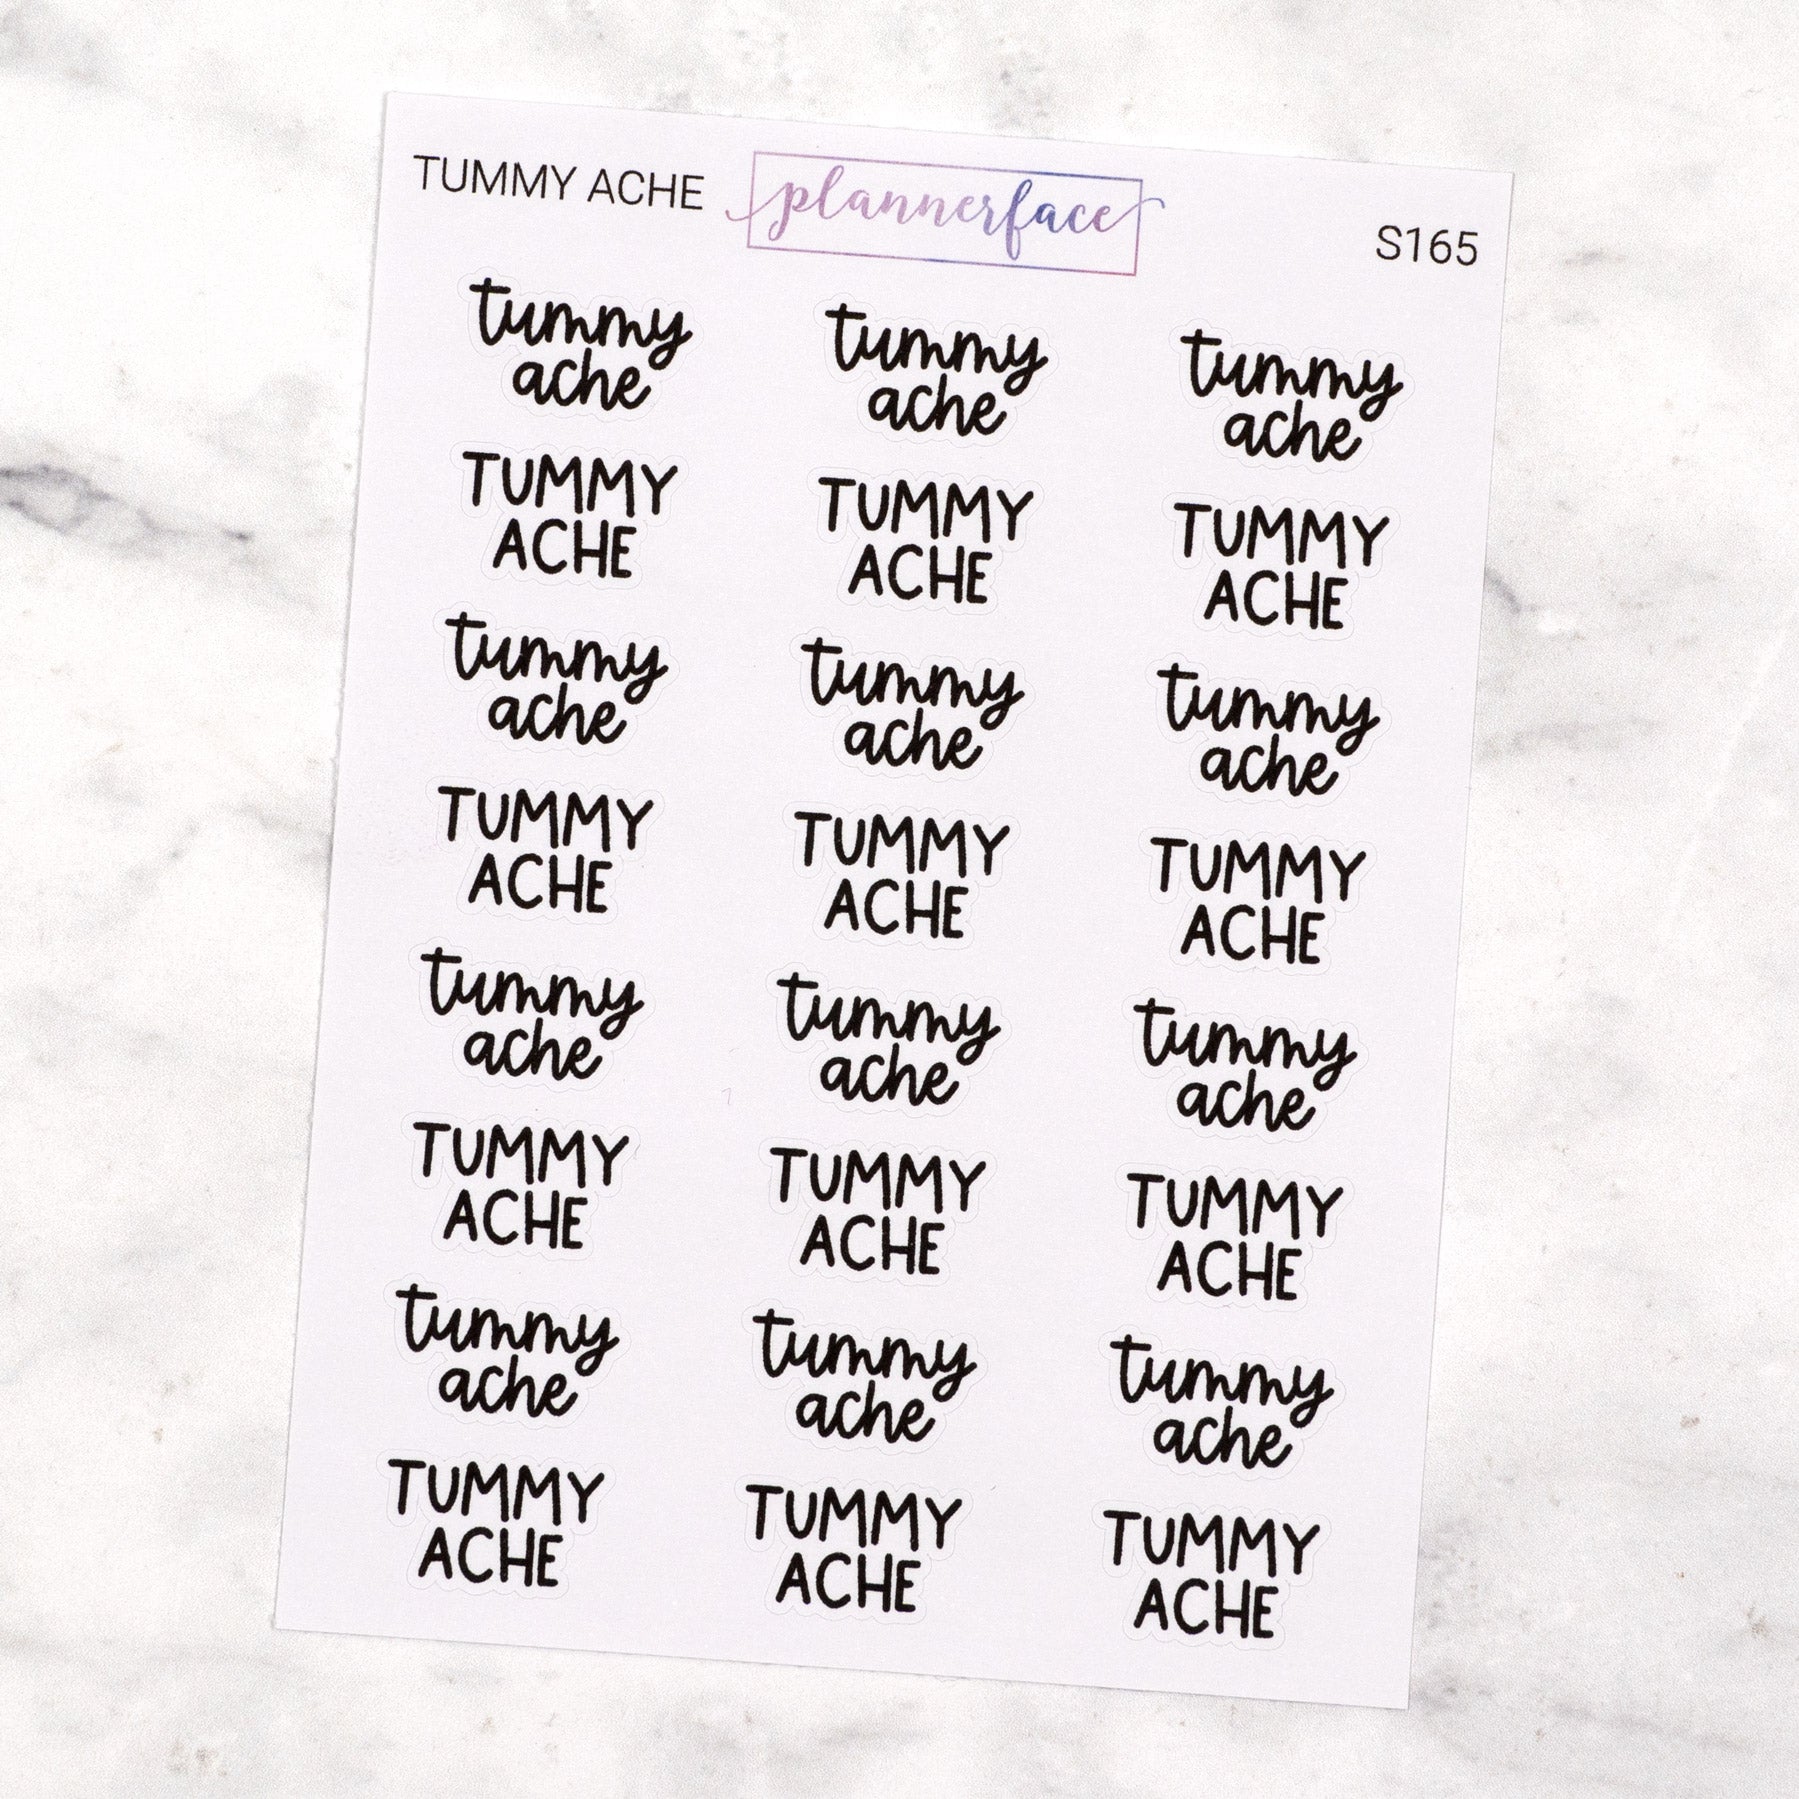 TUMMY ACHE
plannerface
S165
tummy
ache
tummy
ache
tummy
ache
TUMMY
ACHE
TUMMY
ACHE
TUMMY
ACHE
tummy
ache
tummy
ache
tummy
ache
TUMMY
ACHE
TUMMY
ACHE
TUMMY
ACHE
tummy
ache
tummy
ache
tummy
ache
TUMMY
ACHE
TUMMY
ACHE
TUMMY
ACHE
tummy
ache
tummy
ache
tummy
ache
TUMMY
ACHE
TUMMY
ACHE
TUMMY
ACHE